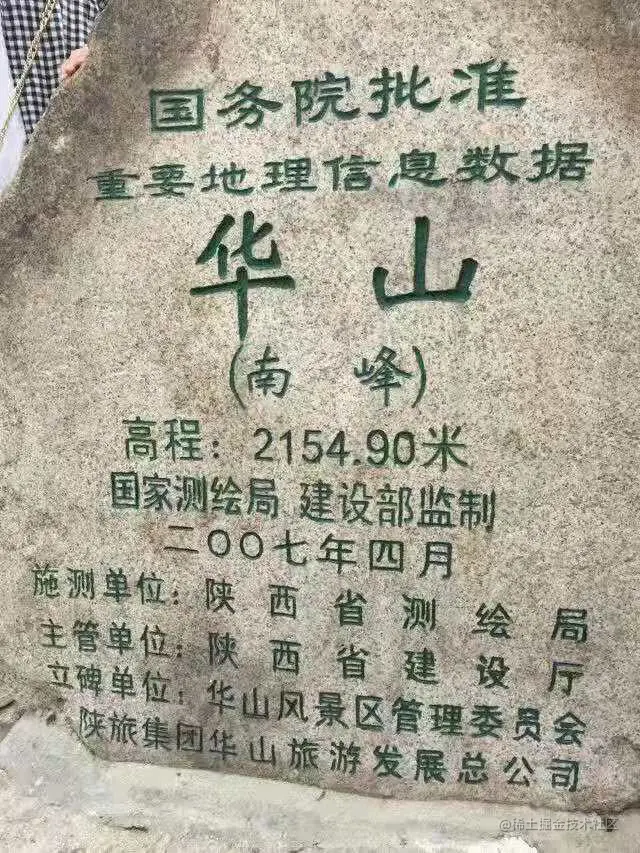 国务院批准
重要地理信息数据
华山
(南峰)
高程：2154.90米
国家测绘局 建设部监制
二〇〇七年四月
施测单位：陕西省测绘局
主管单位：陕西省建设厅
立碑单位：华山风景区管理委员会
陕旅集团华山旅游发展总公司
@稀土掘金技术社区